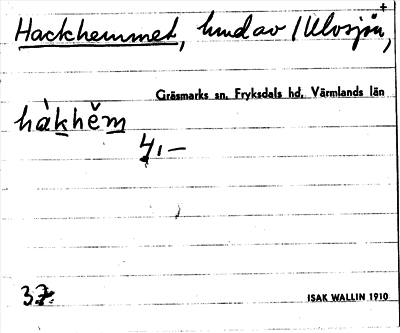 +
Hackhemmet, hmd av /Ulvsjön,
Gräsmarks sn. Fryksdals hd, Värmlands län
hàkhĕm
4,–
37.
ISAK WALLIN 1910